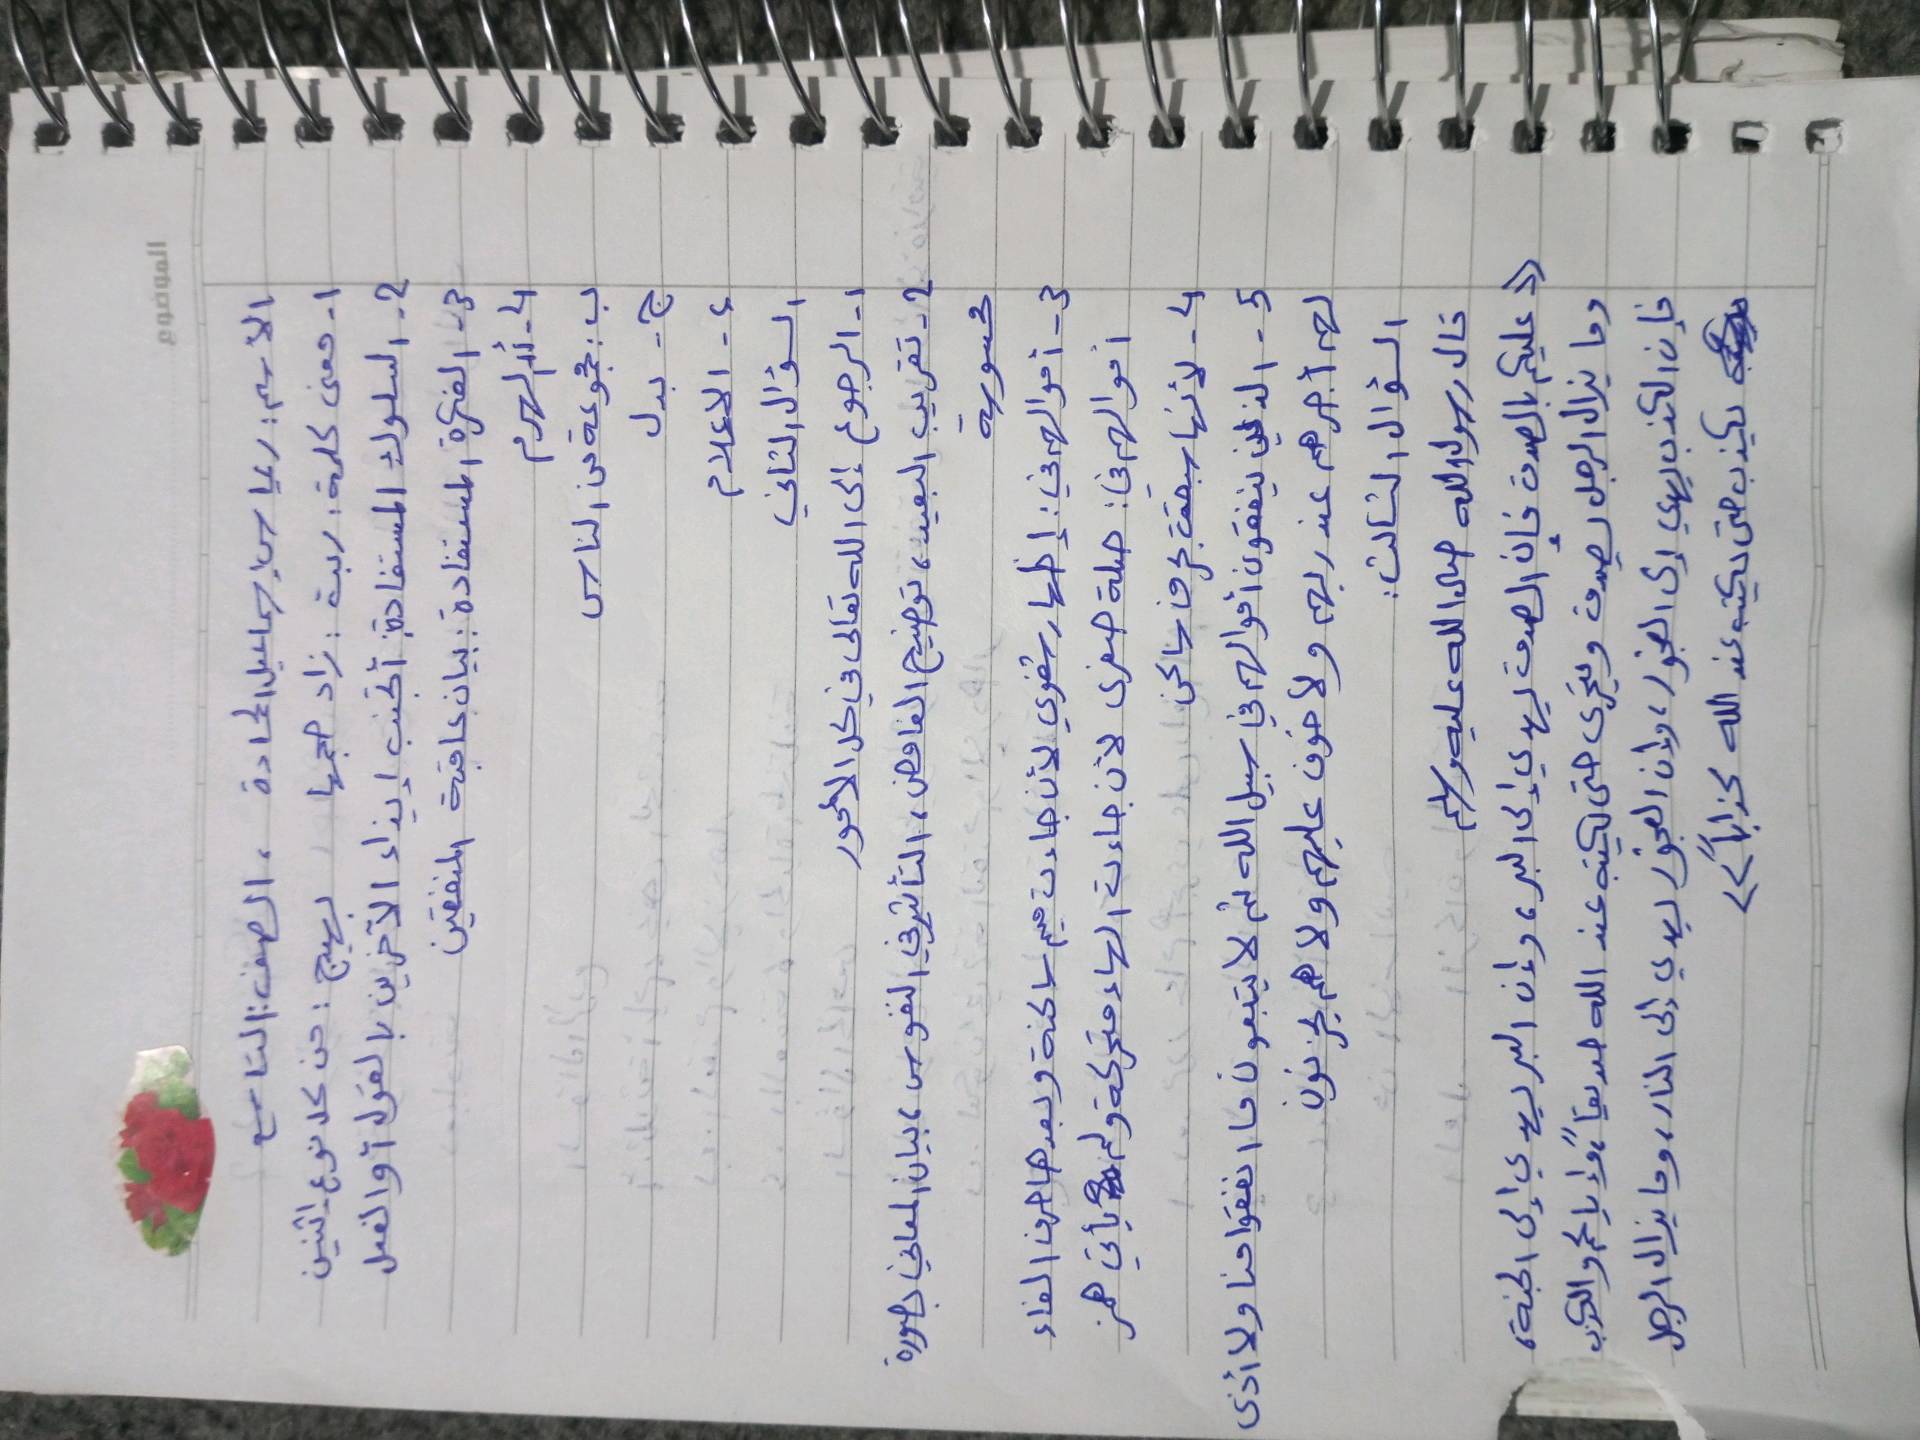 الموضوع
الاسم: ريماس إسماعيل الحدادة ، الصف: التاسع
1- معنى كلمة: ربت : زاد حجمها بهيج : من كل نوع اثنين
2- السلوك المستفادة: أتجنب إيذاء الآخرين بالقول أو الفعل
3- الفكرة المستفادة: بيان عاقبة المنفقين
4- أم الهرم
ب: مجموعة من الناس
ج- بدل
ء - الاعلام
السؤال الثاني
1- الرجوع إلى الله تعالى في كل الأمور
2- تقريب البعيد، توضيح الغامض، التأثير في النفوس، بيان المعاني بصورة
محسوسة
3- أموالهم في: إظهار شفوي لأن جاءت ميم ساكنة وبعدها حرف الفاء
أموالهم في: صلة صغرى لان جاءت الهاء متحركة ولم يأتي همز
4- لأنها سبقت بحرف ساكن
5- الذين ينفقون أموالهم في سبيل الله ثم لا يتبعون ما انفقوا منا ولا أذى
لهم أجرهم عند ربهم ولا خوف عليهم ولا هم يحزنون
السؤال الثالث:
قال رسول الله صلى الله عليه وسلم
<< عليكم بالصدق فإن الصدق يهدي إلى البر، وإن البر يهدي إلى الجنة،
وما يزال الرجل يصدق ويتحرى حتى يكتب عند الله صديقاً، وإياكم والكذب
فإن الكذب يهدي إلى الفجور، وإن الفجور يهدي إلى النار، وما يزال الرجل
يكذب حتى يكتب عند الله كذاباً >>